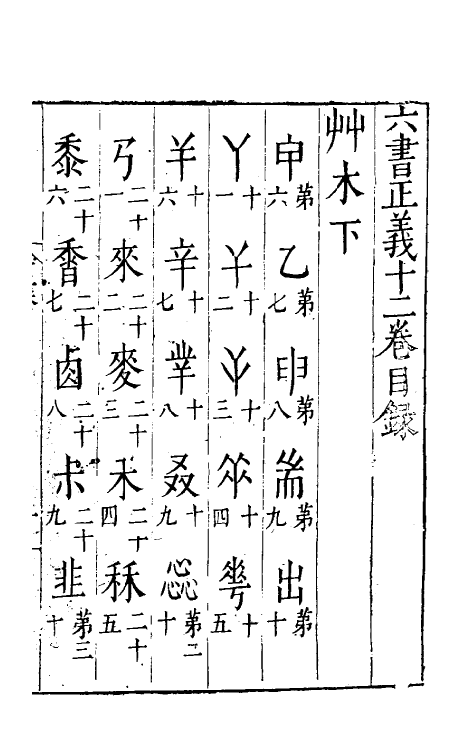 六書正義十二卷目録
艸木下
甲第六 乙第七 申第八 耑第九 出第十
丫十一 𢆉十二 十三 𠂹十四 𠌶十五
𢆉十六 辛十七 丵十八 叒十九 惢第二十
𠃑二十一 來二十二 麥二十三 禾二十四 秝二十五
黍二十六 香二十七 鹵二十八 尗二十九 韭第三十